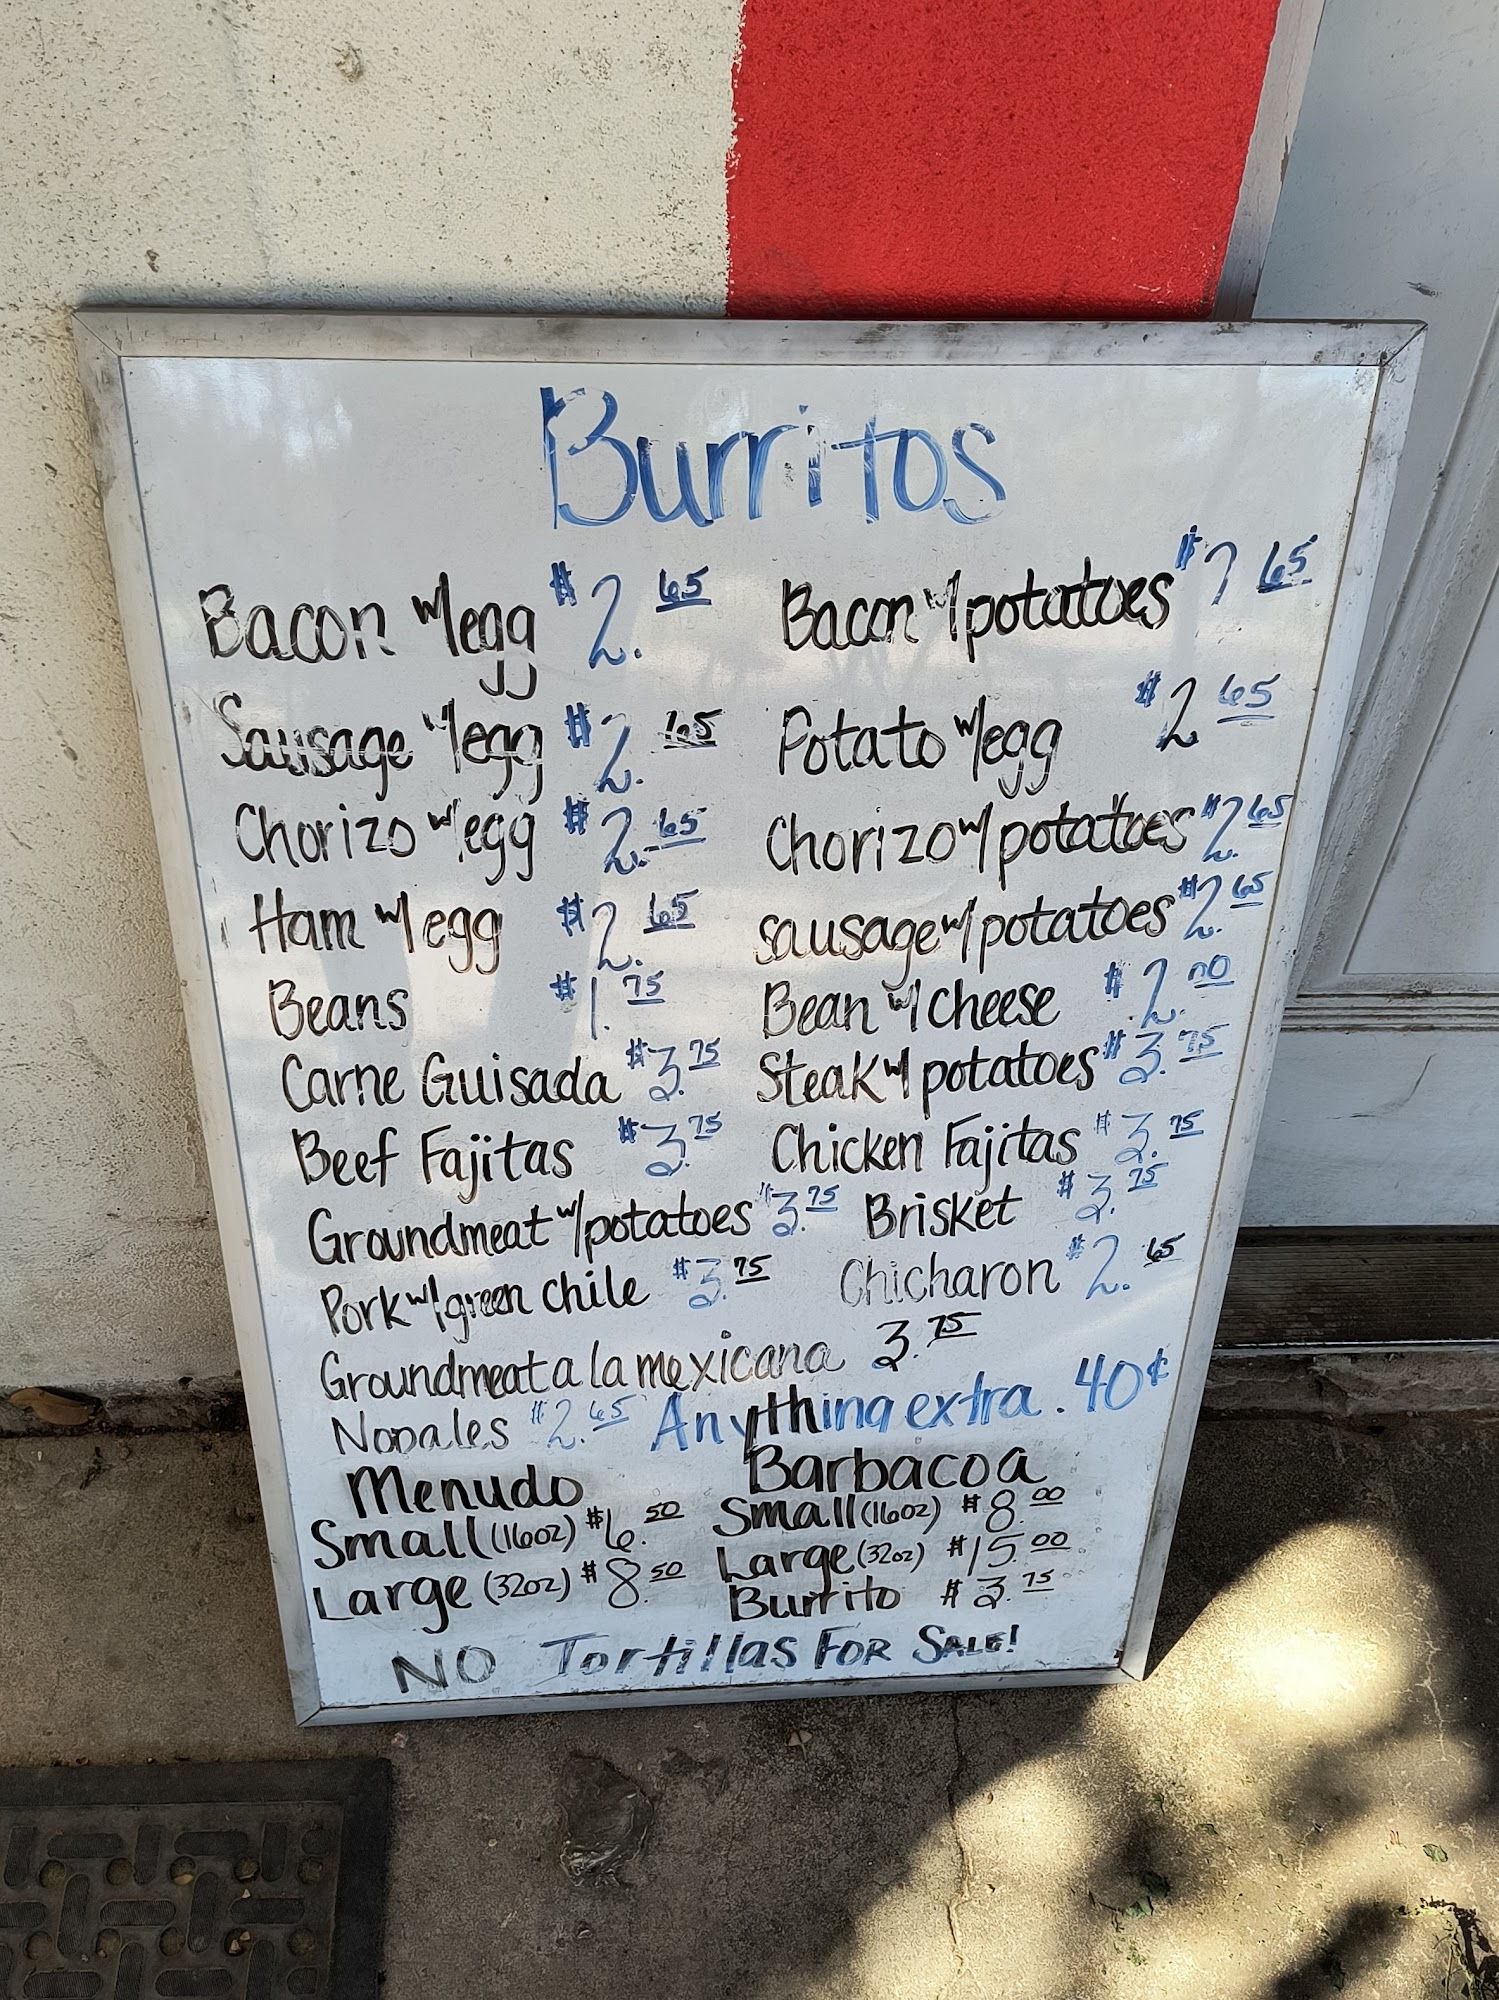 Burritos
Bacon w/egg $2.65 Bacon w/potatoes $2 65
Sausage w/egg $2.65 Potato w/egg $2 65
Chorizo w/egg $2.65 Chorizo w/potatoes $2.65
Ham w/egg $2.65 sausage w/potatoes $2.65
Beans $1.75 Bean w/cheese $2.00
Carne Guisada $3.75 Steak w/potatoes $3.75
Beef Fajitas $3.75 Chicken Fajitas $3.75
Groundmeat w/potatoes $3.75 Brisket $3.75
Pork w/green chile $3.75 Chicharon $2.65
Groundmeat a la mexicana 3.75
Nopales $2.65 Anything extra .40¢
Menudo Barbacoa
Small (16oz) $6.50 Small (16oz) $8.00
Large (32oz) $8.50 Large (32oz) $15.00
Burrito $3.75
NO Tortillas FOR SALE!